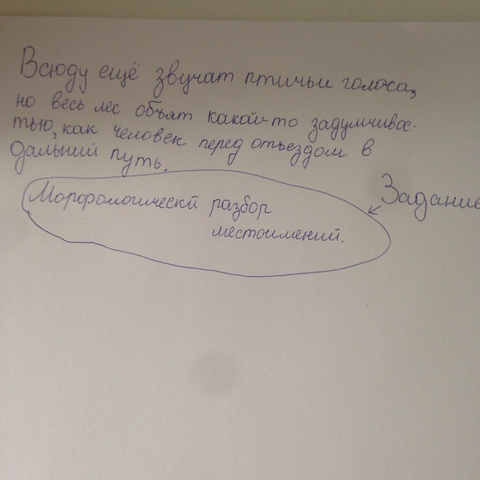 Всюду ещё звучат птичьи голоса,
но весь лес объят какой-то задумчивос-
тью, как человек перед отъездом в
дальний путь.
Задание
Морфологический разбор
местоимений.